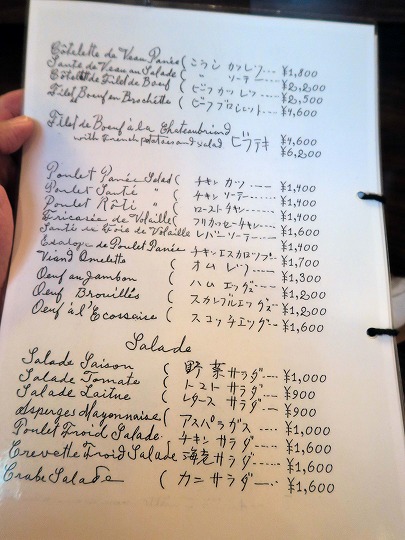 Côtelette de Veau Panée ( こうし カツレツ ... ¥1,800
Sauté de Veau au Salade ( 〃 ソーテー ... ¥2,200
Côtelette de Filet de Boeuf ( ビーフ カツ レツ ... ¥2,500
Filet Boeuf en Brochette ( ビーフ ブロシェット ... ¥4,600
Filet de Boeuf à la Chateaubriand ビフテキ ¥4,600
with french potatoes and salad ¥6,200
Poulet Panée Salad ( チキン カツ ---- ¥1,400
Poulet Sauté 〃 ( チキン ソーテー ---- ¥1,400
Poulet Rôti 〃 ( ロースト チキン ---- ¥1,400
Fricasée de Volaille ( フリカッセーチキン --- ¥1,400
Sauté de Foie de Volaille レバーソーテー --- ¥1,600
Escalope de Poulet Panée チキンエスカロップ ¥1,400
Viand Omelette ( オム レツ --- ¥1,700
Oeuf au Jambon ( ハム エッグ --- ¥1,300
Oeuf Brouillés ( スカランブルエッグス ¥1,200
Oeuf à l'Ecossaise ( スコッチエッグ --- ¥1,600
Salade
Salade Saison ( 野菜サラダ --- ¥1,000
Salade Tomate ( トマト サラダ --- ¥900
Salade Laitue ( レタース サラダ --- ¥900
Asperges Mayonnaise ( アスパラガス ---- ¥1,000
Poulet Froid Salade ( チキン サラダ ---- ¥1,600
Crevette Froid Salade 海老 サラダ ---- ¥1,600
Crabe Salade ( カニ サラダ --- ¥1,600